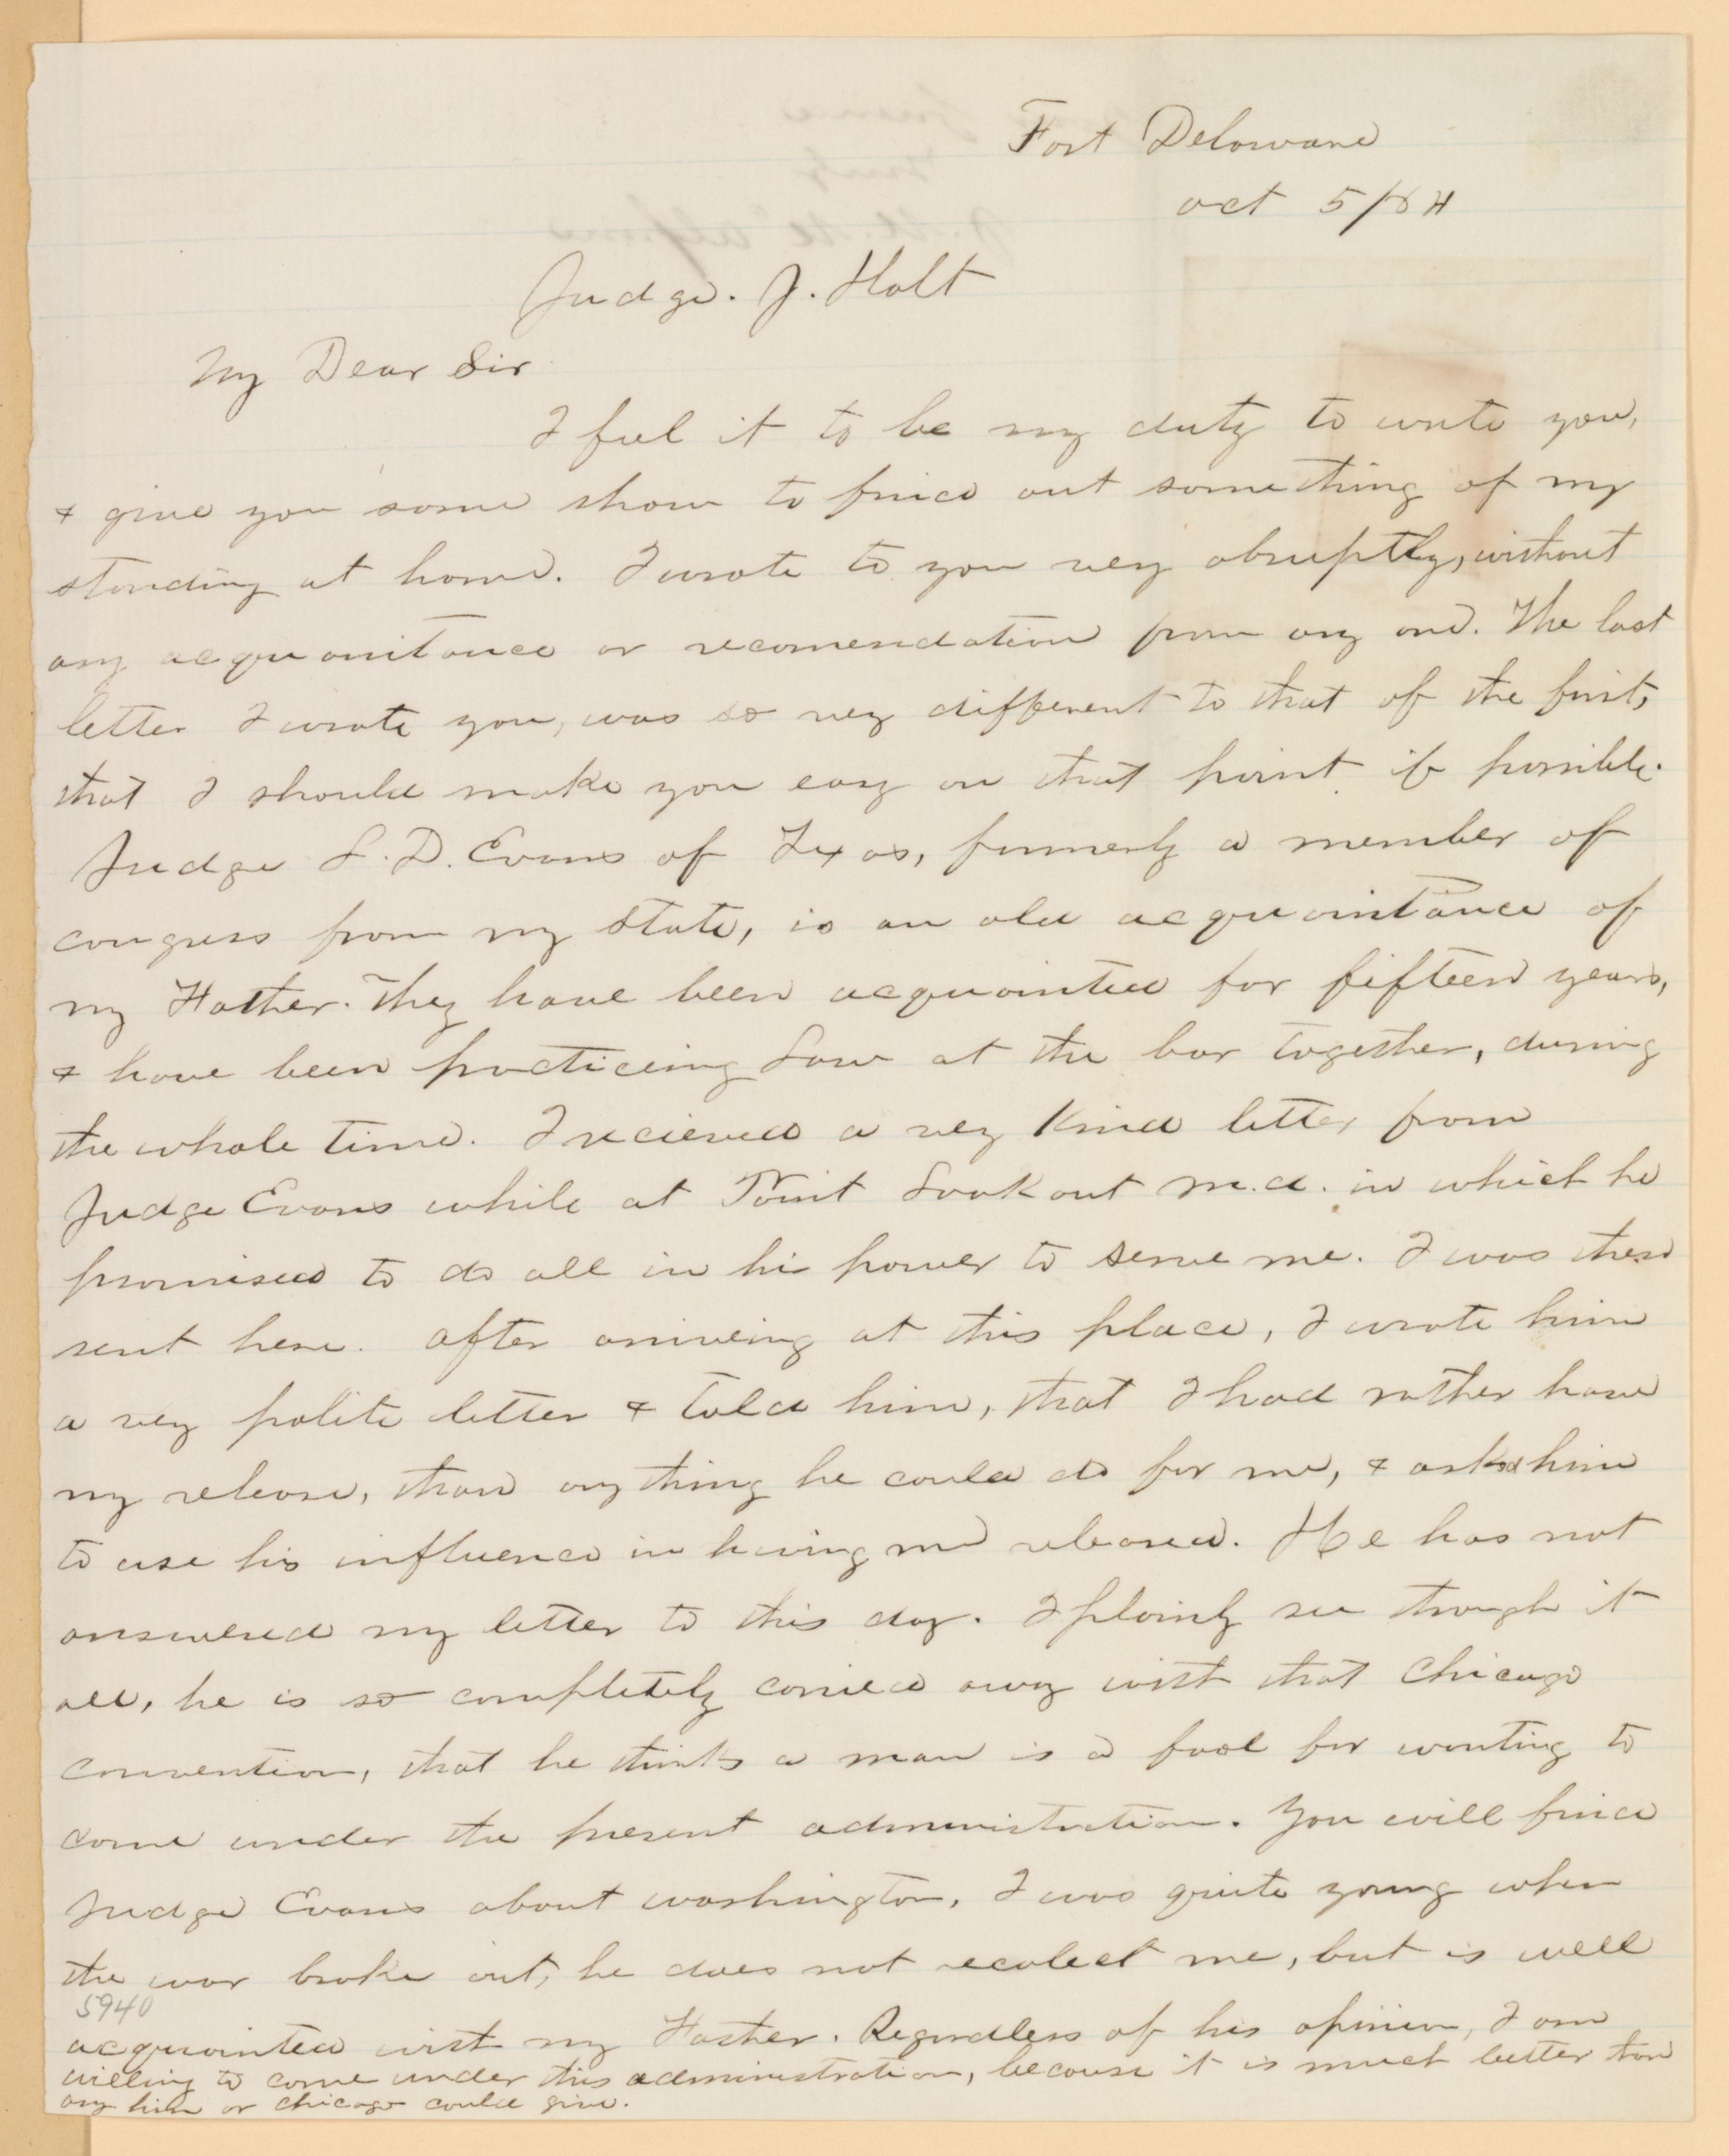 Fort Delaware
Oct 5/64
Judge. J. Holt
My Dear Sir
I feel it to be my duty to write you,
& give you some show to find out something of my
standing at home. I wrote to you very abruptly, without
any acquanitance or recomendation from any one. The last
letter I wrote you, was so very different to that of the first,
that I should make you easy on that point if possible.
Judge L. D. Evans of Texas, formerly a member of
congress from my state, is an old acquaintance of
my Father. They have been acquainted for fifteen years,
& have been practiceing Law at the bar together, during
the whole time. I recieved a very kind letter from
Judge Evans while at Point Lookout M.d. in which he
promised to do all in his power to serve me. I was then
sent here. After arriveing at this place, I wrote him
a very polite letter & told him, that I had rather have
my release, than any thing he could do for me, & asked him
to use his influence in having me released. He has not
answered my letter to this day. I plainly see through it
all, he is so completely carried away with that Chicago
convention, that he thinks a man is a fool for wanting to
come under the present administration. You will find
Judge Evans about washington, I was quite young when
the war broke out, he does not recolect me, but is well
5940
acquainted with my Father. Regardless of his opinion, I am
willing to come under this administration, because it is much better than
any him or chicago could give.